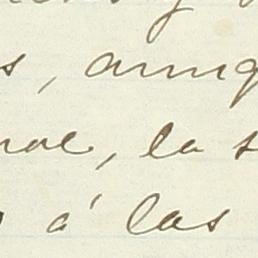 s, aunq
ral, la s
á las